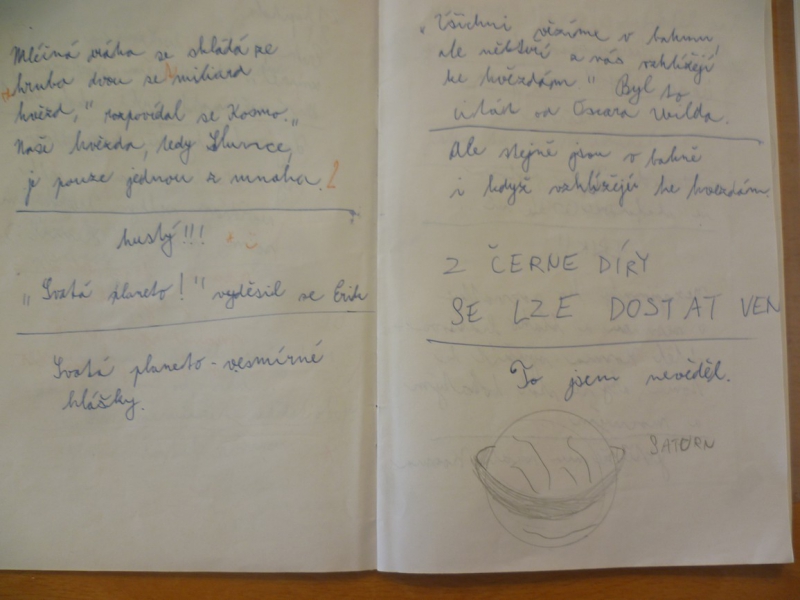 Mléčná dráha se skládá ze
zhruba dvou set miliard
hvězd," rozpovídal se Kosmo. „
Naše hvězda, tedy Slunce,
je pouze jednou z mnoha.
hustý!!!
„Svatá planeto!" vyděsil se Erik
Svatá planeto - vesmírné
hlášky.
„Všichni vězíme v bahnu,
ale někteří z nás vzhlížejí
ke hvězdám" Byl to
citát od Oscara Wilda.
Ale stejně jsou v bahně
i když vzhlížejí ke hvězdám.
Z ČERNE DÍRY
SE LZE DOSTAT VEN
To jsem nevěděl.
SATURN